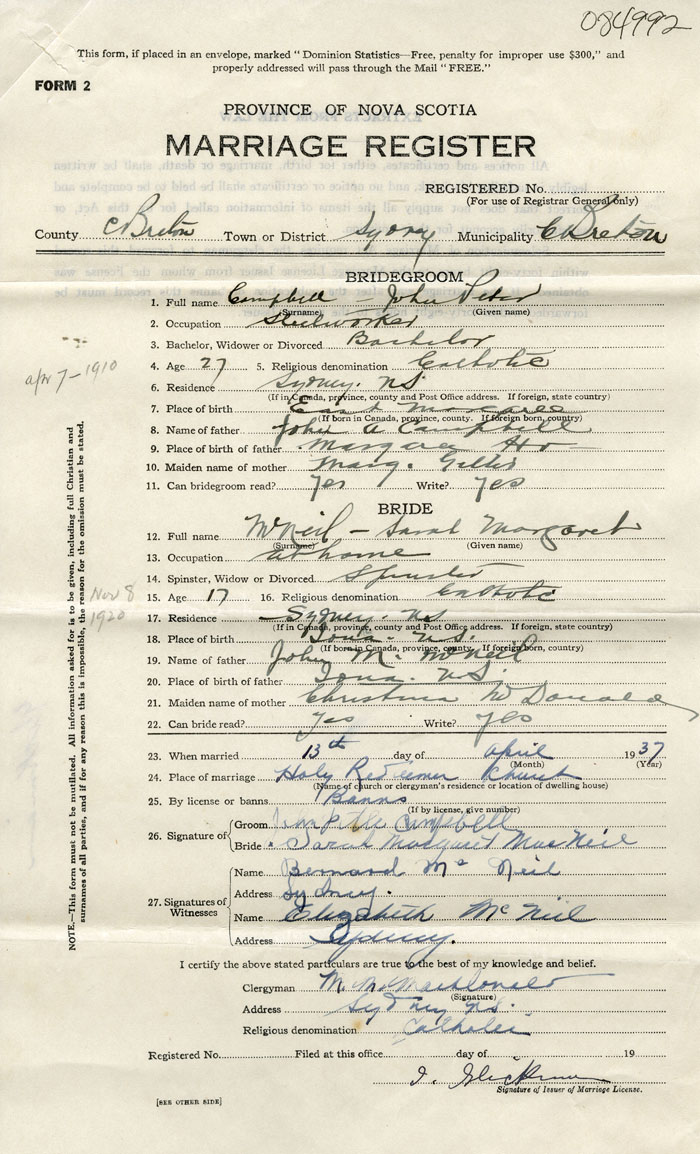 084992
This form, if placed in an envelope, marked "Dominion Statistics—Free, penalty for improper use $300," and
properly addressed will pass through the Mail "FREE."
FORM 2
PROVINCE OF NOVA SCOTIA
MARRIAGE REGISTER
REGISTERED No.
(For use of Registrar General only)
County C Breton Town or District Sydney Municipality C Breton
BRIDEGROOM
1. Full name Campbell - John Peter
(Surname) (Given name)
2. Occupation Steelworker
3. Bachelor, Widower or Divorced Bachelor
4. Age 27 5. Religious denomination Catholic
apr 7-1910
6. Residence Sydney. NS
(If in Canada, province, county and Post Office address. If foreign, state country)
7. Place of birth East Margaree
(If born in Canada, province, county. If foreign born, country)
8. Name of father John A Campbell
9. Place of birth of father Margaree
10. Maiden name of mother Marg. Gillis
11. Can bridegroom read? Yes Write? Yes
BRIDE
12. Full name McNeil - Sarah Margaret
(Surname) (Given name)
13. Occupation at home
14. Spinster, Widow or Divorced Spinster
15. Age 17 16. Religious denomination Catholic
Nov 8
1920
17. Residence Sydney. NS
(If in Canada, province, county and Post Office address. If foreign, state country)
18. Place of birth Iona. N.S.
(If born in Canada, province, county. If foreign born, country)
19. Name of father John M. McNeil
20. Place of birth of father Iona. N.S.
21. Maiden name of mother Christina McDonald
22. Can bride read? Yes Write? Yes
23. When married 13th day of april 1937
(Month) (Year)
24. Place of marriage Holy Redeemer Church
(Name of church or clergyman's residence or location of dwelling house)
25. By license or banns Banns
(If by license, give number)
26. Signature of
Groom Campbell
Bride Sarah Margaret MacNeil
27. Signatures of Witnesses
Name Bernard Mc Neil
Address Sydney.
Name Elizabeth McNeil
Address Sydney.
I certify the above stated particulars are true to the best of my knowledge and belief.
Clergyman MacDonald
(Signature)
Address Sydney NS.
Religious denomination Catholic
Registered No. Filed at this office day of 19
Signature of Issuer of Marriage License.
[SEE OTHER SIDE]
NOTE.—This form must not be mutilated. All information asked for is to be given, including full Christian and
surnames of all parties, and if for any reason this is impossible, the reason for the omission must be stated.